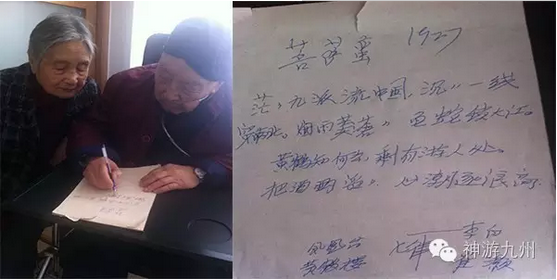 菩萨蛮 1927
茫〃九派流中国,沉〃一线
穿南北。烟雨莽苍〃 龟蛇锁大江。
黄鹤知何去,剩有游人处。
把酒酹滔〃,心潮逐浪高。
凤凰台 七律 李白
黄鹤楼 崔颢
神游九州